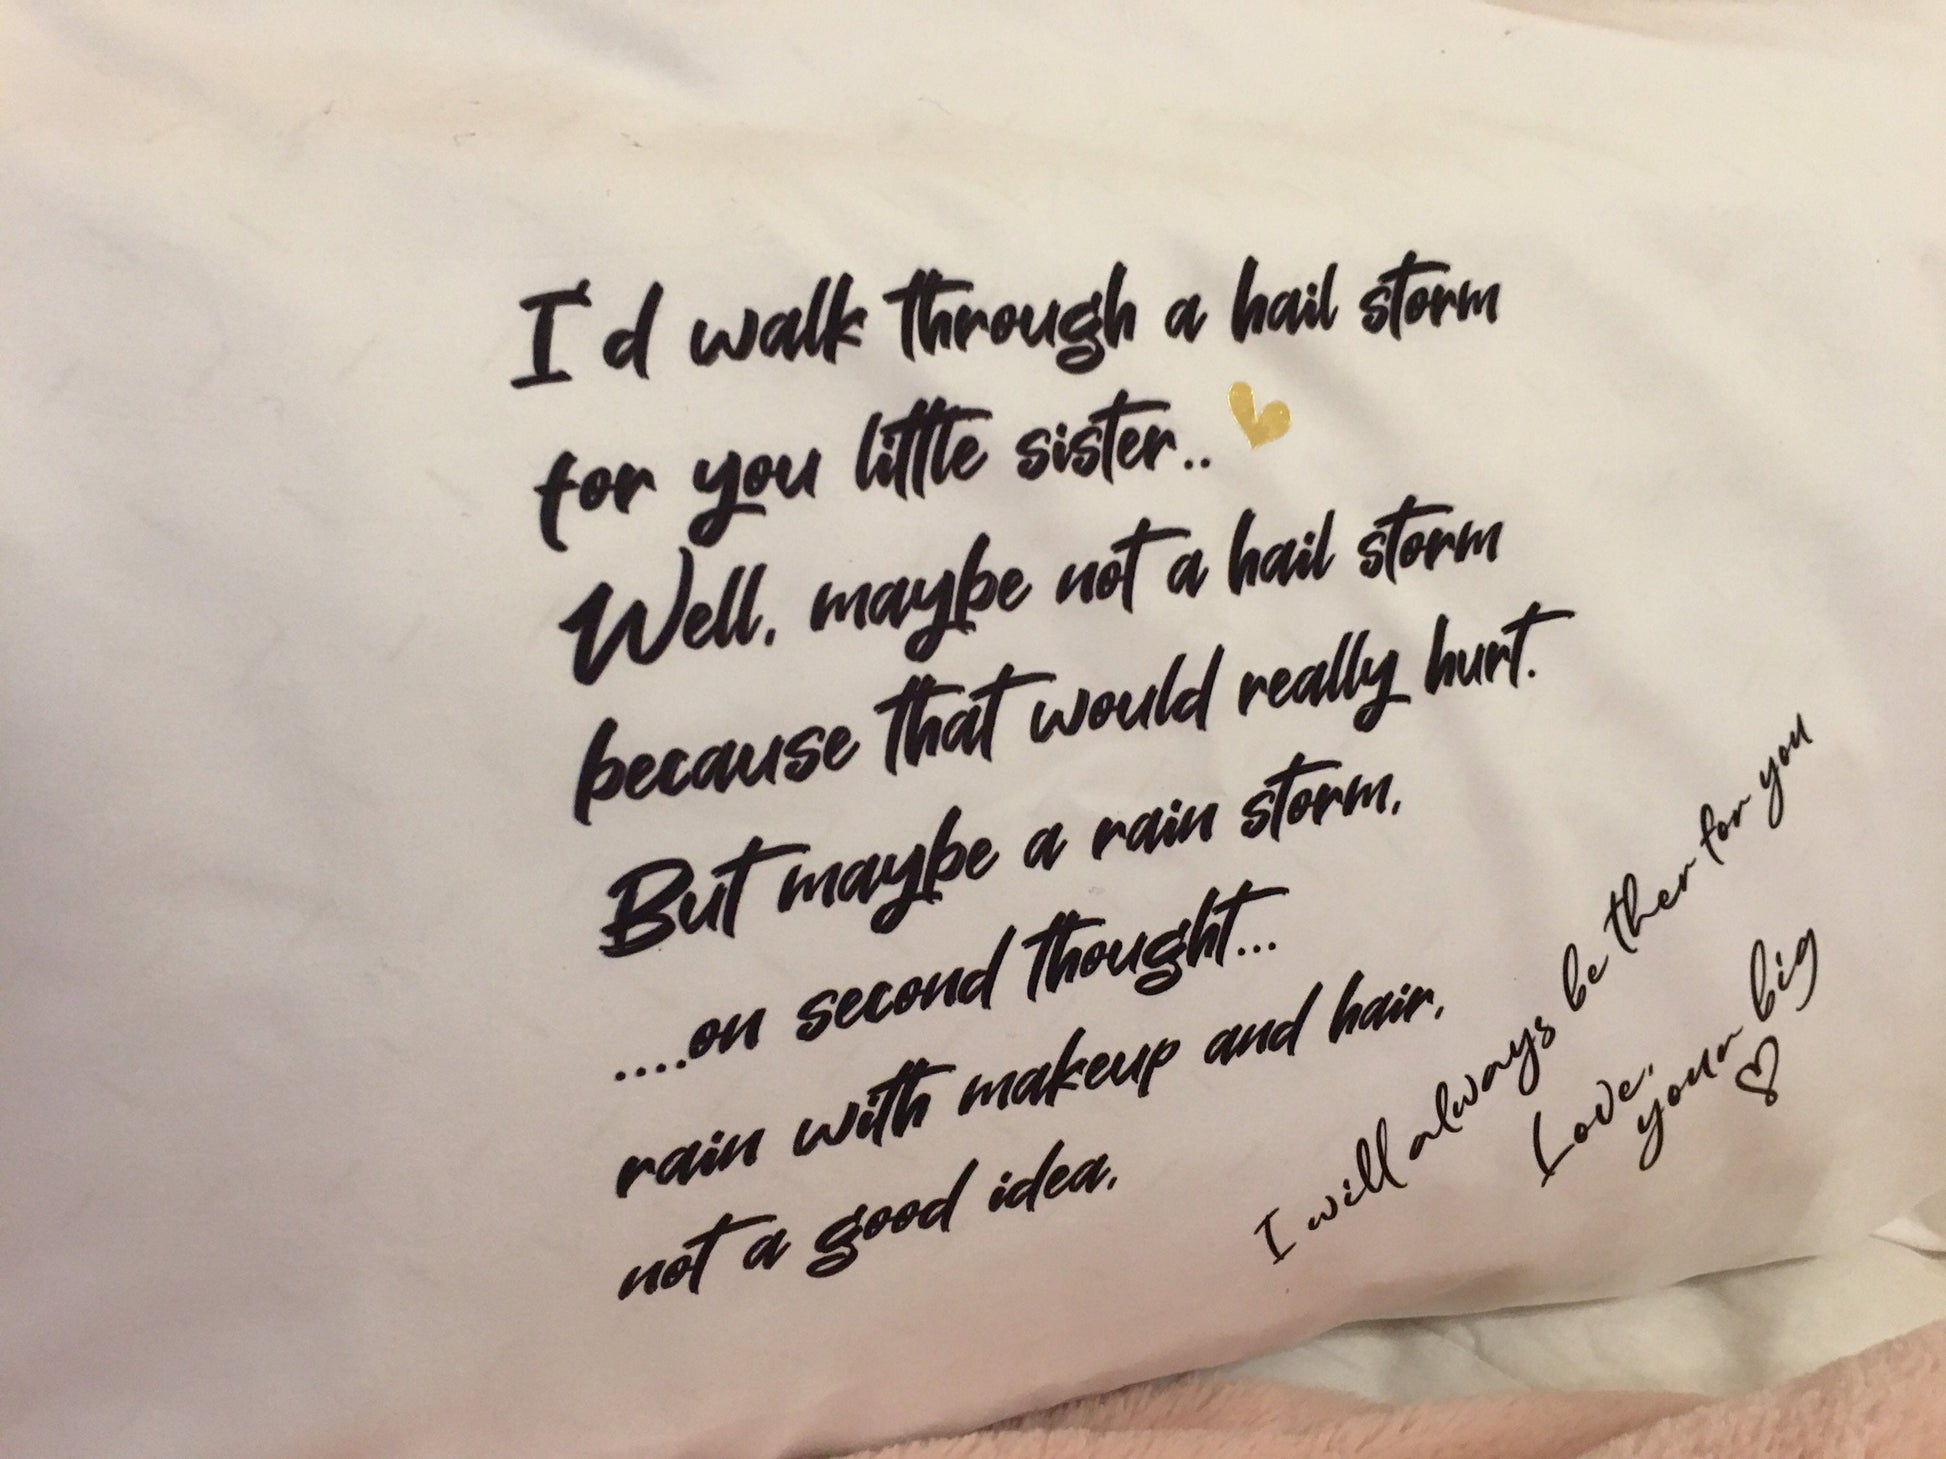 I'd walk through a hail storm
for you little sister..
Well, maybe not a hail storm
because that would really hurt.
But maybe a rain storm,
....on second thought...
rain with makeup and hair,
not a good idea,
I will always be ther for you
Love,
your big